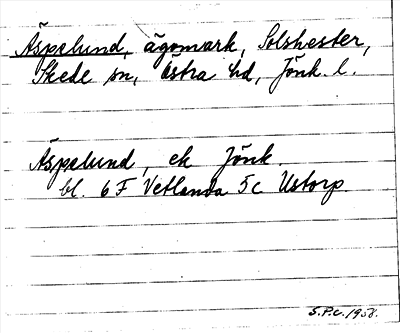 Äspelund, ägomark, Solshester,
Skede sn, Östra hd, Jönk. l.
Äspelund, ek Jönk.
bl. 6F Vetlanda 5c Ustorp.
S.P.C. 1958.